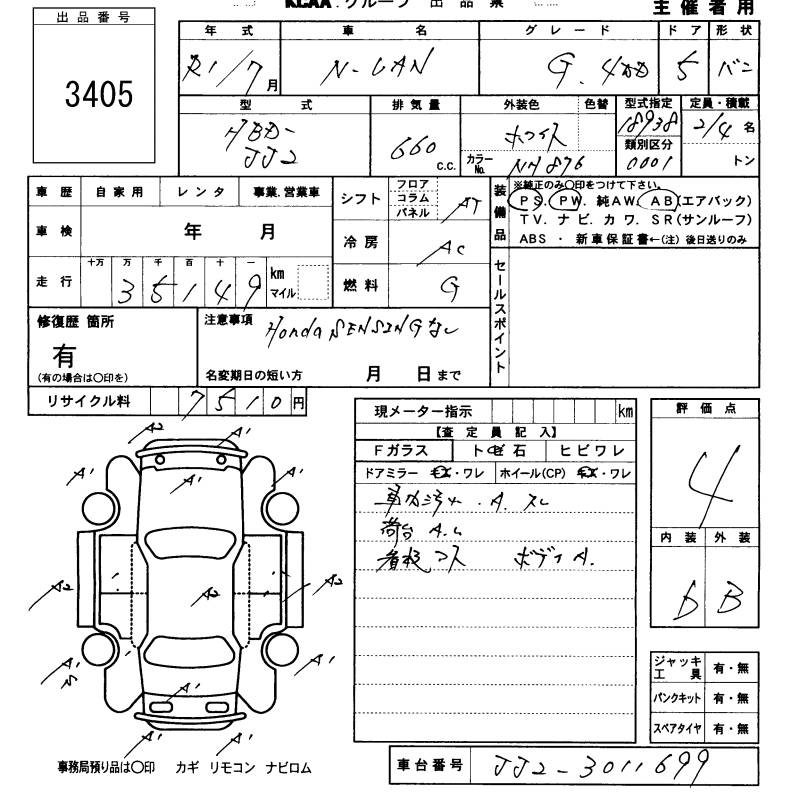 KCAA.グループ 出品票
主催者用
出品番号
3405
年式 車名 グレード ドア 形状
R1/7月 N-VAN G. 4WD 5 バン
型式 排気量 外装色 色替 型式指定 定員・積載
HBD-JJ2 660 c.c. ホワイト 18938 2/4名
カラーNo. NH876 類別区分 0001 トン
車歴 自家用 レンタ 事業.営業車
シフト フロア コラム パネル AT
装備品 ※純正のみ〇印をつけて下さい。
PS. PW. 純AW. AB(エアバック)
TV. ナビ. カワ. SR(サンルーフ)
ABS ・ 新車保証書←(注) 後日送りのみ
車検 年 月
冷房 AC
走行 十万 万 千 百 十 一
35149 km マイル
燃料 G
セールスポイント
修復歴 箇所
有
(有の場合は〇印を)
注意事項 Honda SENSINGなし
名変期日の短い方 月 日まで
リサイクル料 7510円
現メーター指示 km
【査定員記入】
Fガラス トビ石 ヒビワレ
ドアミラー キズ・ワレ ホイール(CP) キズ・ワレ
車内汚れ . A. スレ
荷台 A.
看板コス ボディA.
評価点
4
内装 外装
D B
A2 A'
A' A' A'
A2 A2 A2
A' A' A'
A' A'
ジャッキ工具 有・無
パンクキット 有・無
スペアタイヤ 有・無
事務局預り品は〇印 カギ リモコン ナビロム
車台番号 JJ2-3011699